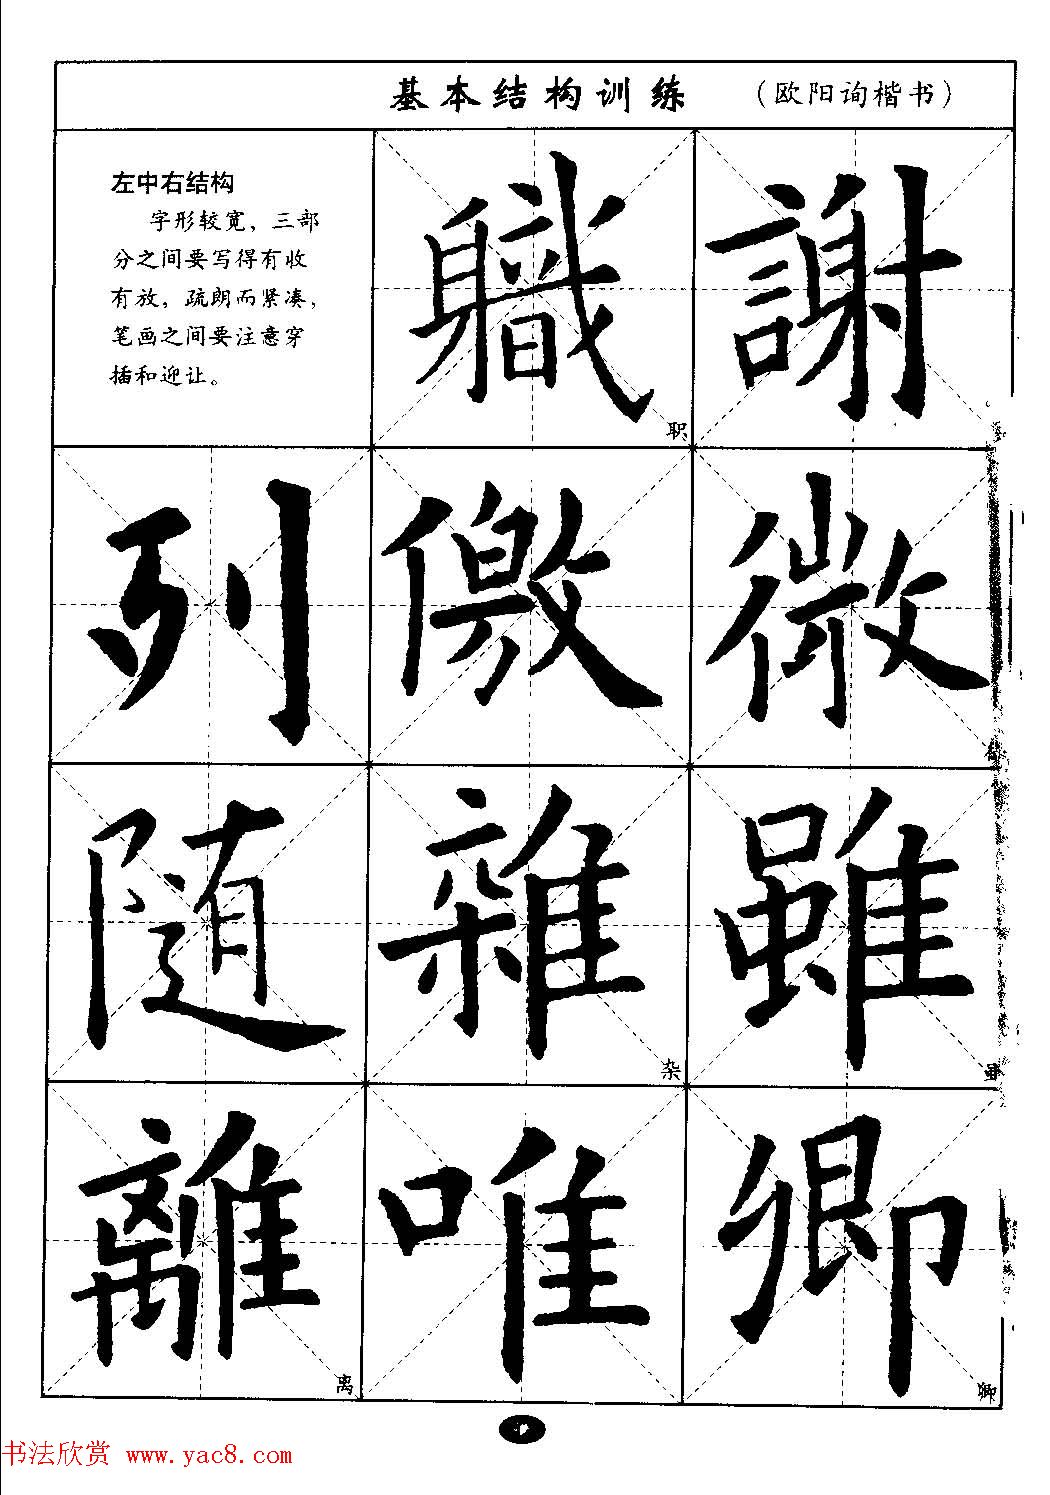 基本结构训练 （欧阳询楷书）
左中右结构
字形较宽，三部
分之间要写得有收
有放，疏朗而紧凑，
笔画之间要注意穿
插和迎让。
軄 謝
职
列 儌 微
随 雜 雖
杂 虽
離 唯 卿
离 卿
书法欣赏 www.yac8.com